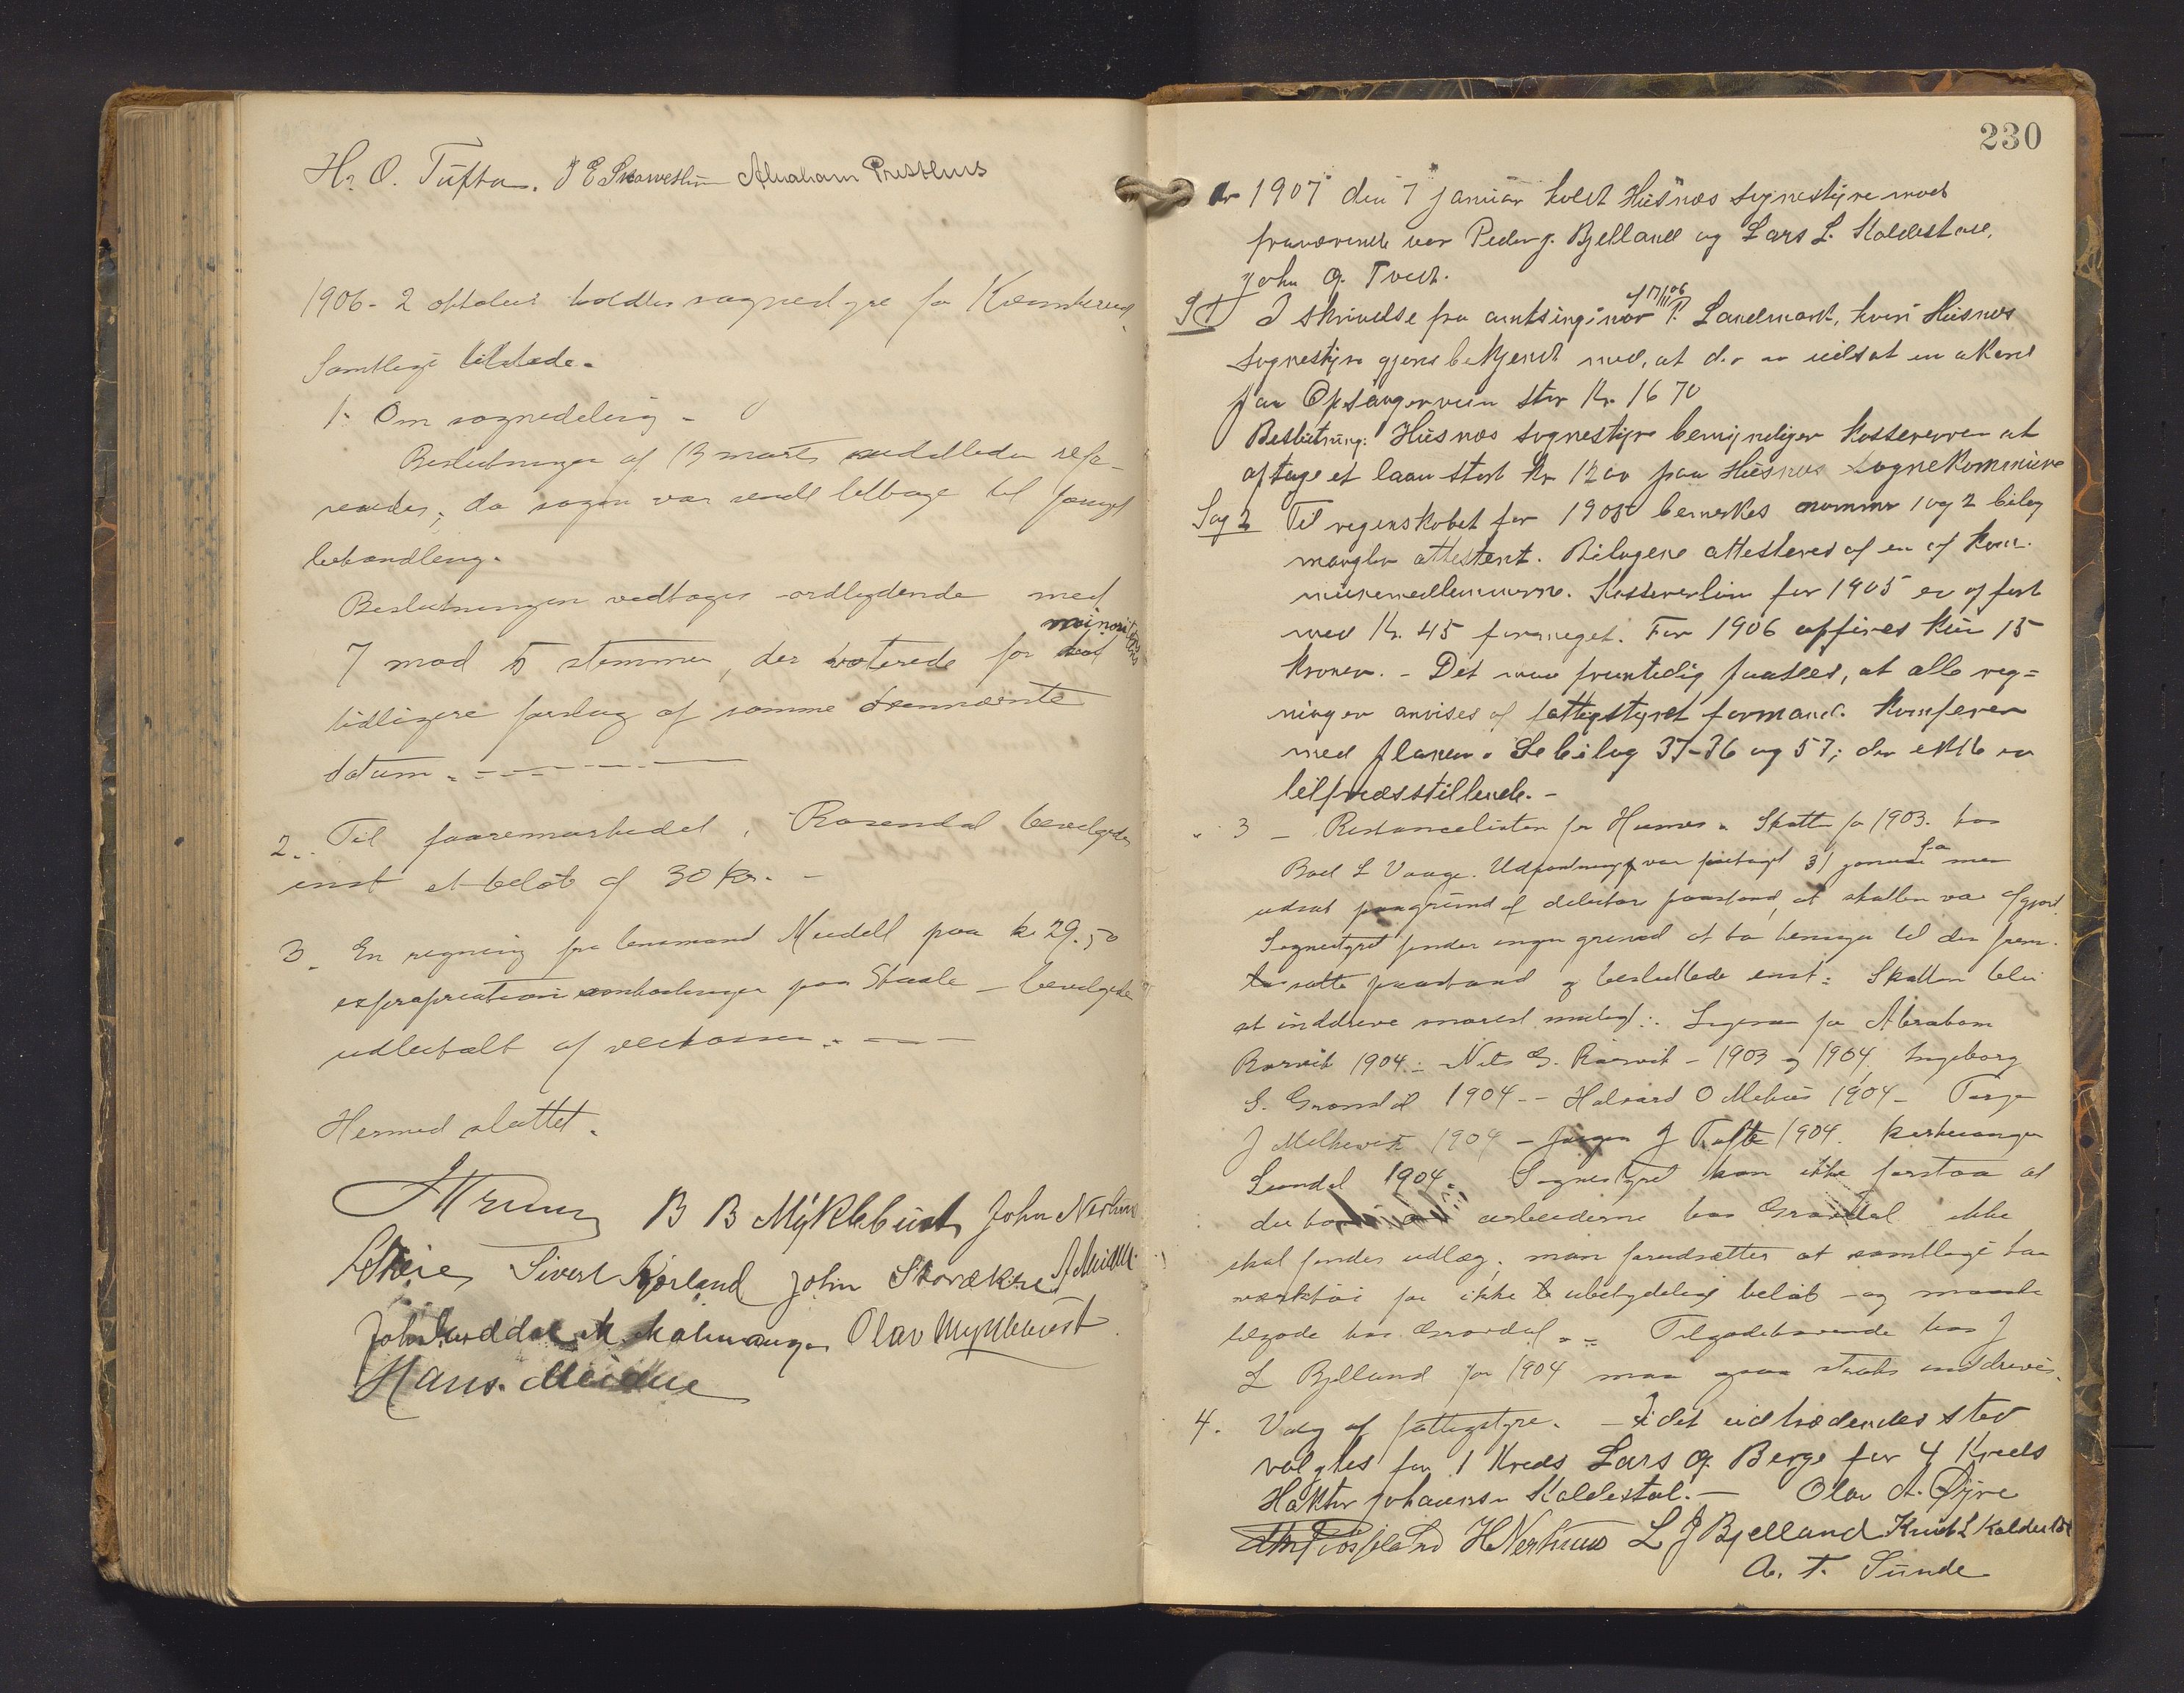 Hr. O. Tufta. J E Skarveslin Abraham Presthus
1906 - 2 oktober holdtes sognestyre for Kvinnherred
Samtlige tilstede.
1. Om sognedeling -
Beslutningen af 13 marts meddelledes refe-
reredes; da sagen var sendt tilbage til fornyet
behandling.
Beslutningen vedtoges ordlydende med
7 mod 5 stemmer, der voterede for minoritetens
tidligere forslag af samme ovennævnte
datum. - - - -
2. Til faaremarkedet i Rosendal bevilgedes
enst et beløb af 30 kr. -
3. En regning fra lensmand Meidell paa kr 29.50
expropriations omkostninger paa Staale - bevilgedes
udbetalt af veikassen. - - -
Hermed sluttet.
B B Myklebust John Nerhus
Sivert Kjerland John Skorækre A Meidell
John Guddal M. Malmanger Olav Myklebust
Hans. Meidell
230
Aar 1907 den 7 januar holdt Husnes sognestyre møde
fraværende var Peder J. Bjelland og Lars L. Kaldestad.
John G. Tvedt.
S 1 I skrivelse fra amtsinginør P. Landmark, af 17/11 06 hvori Husnes
sognestyre gjøres bekjendt med, at der er udsat en akord
paa Opsangerveien stor Kr. 1670
Beslutning: Husnes sognestyre bemyndiger kassereren at
optage et laan stort Kr 1200 paa Husnes sognekommune
Sag 2 Til regnskabet for 1905 bemerkes nummer 1 og 2 bilag
mangler attestert. Bilagene attesteres af en af kom-
munemedlemmerne. Kassererløn for 1905 er opført
med Kr. 45 formeget. For 1906 opføres kun 15
kroner. - Det maa fremtidig paasees, at alle reg=
ninger anvises af fattigstyret formand. Konferer
med planen. Se bilag 37-36 og 57; der ikke er
tilfredsstillende. -
" 3 - Restancelisten for Husnes. Skatten for 1903. hos
Boel L Vaage. Udpantning var foretaget 31 januar f.a men
udsat paagrund af debitors paastand, at skatten var afgjort.
Sognestyret finder ingen grund at ta hensyn til den frem-
satte paastand og besluttede enst: Skatten blir
at inddrive snarest muligt:. Ligesaa for Abraham
Rørvik 1904.- Nils G. Røsvik - 1903 og 1904. Ingeborg
S. Grøndal 1904 -- Halvard O Mehus 1904 - Torger
J Melkevik 1904 - Jørgen J Tufte 1904.
Sundal 1904. Sognestyret kan ikke forstaa at
der hos arbeiderne hos Grøndal ikke
skal findes udlæg; man forudsætter at samtlige har
verktøi for ikke ubetydelig beløb - og maaske
tilgode hos Grøndal. - Tilgodehavende hos J
L Bjelland for 1904 maa ogsaa straks inddrives.
4. Valg af fattigstyre. - I det udtrædendes sted
valgtes for 1 Kreds Lars G. Berge for 4 Kreds
Haktor Johannesen Kaldestad. - Olav A. Øyre
H Nerhus L J Bjelland Knut L Kaldestad
A. T. Sunde